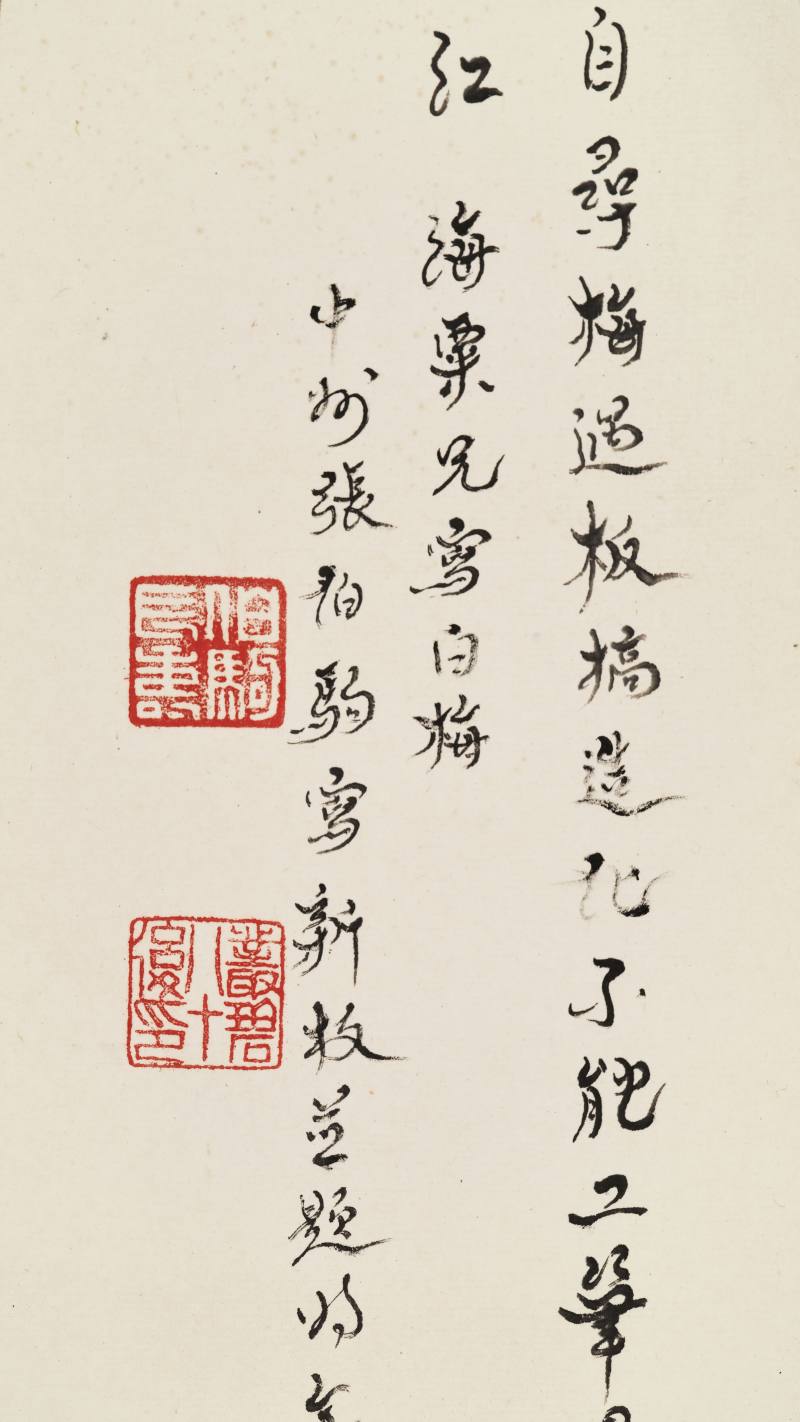 自尋梅過板橋造化不能工筆
紅 海粟兄寫白梅
中州張伯駒寫新枝並題時
伯駒長壽
叢碧八十後印